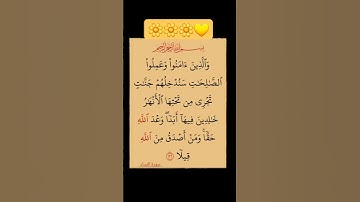 بِسْمِ اللَّهِ الرَّحْمَٰنِ الرَّحِيمِ
وَٱلَّذِينَ ءَامَنُوا۟ وَعَمِلُوا۟
ٱلصَّٰلِحَٰتِ سَنُدْخِلُهُمْ جَنَّٰتٍ
تَجْرِى مِن تَحْتِهَا ٱلْأَنْهَٰرُ
خَٰلِدِينَ فِيهَآ أَبَدًا ۖ وَعْدَ ٱللَّهِ
حَقًّا ۚ وَمَنْ أَصْدَقُ مِنَ ٱللَّهِ
قِيلًا ١٢٢
سورة النساء